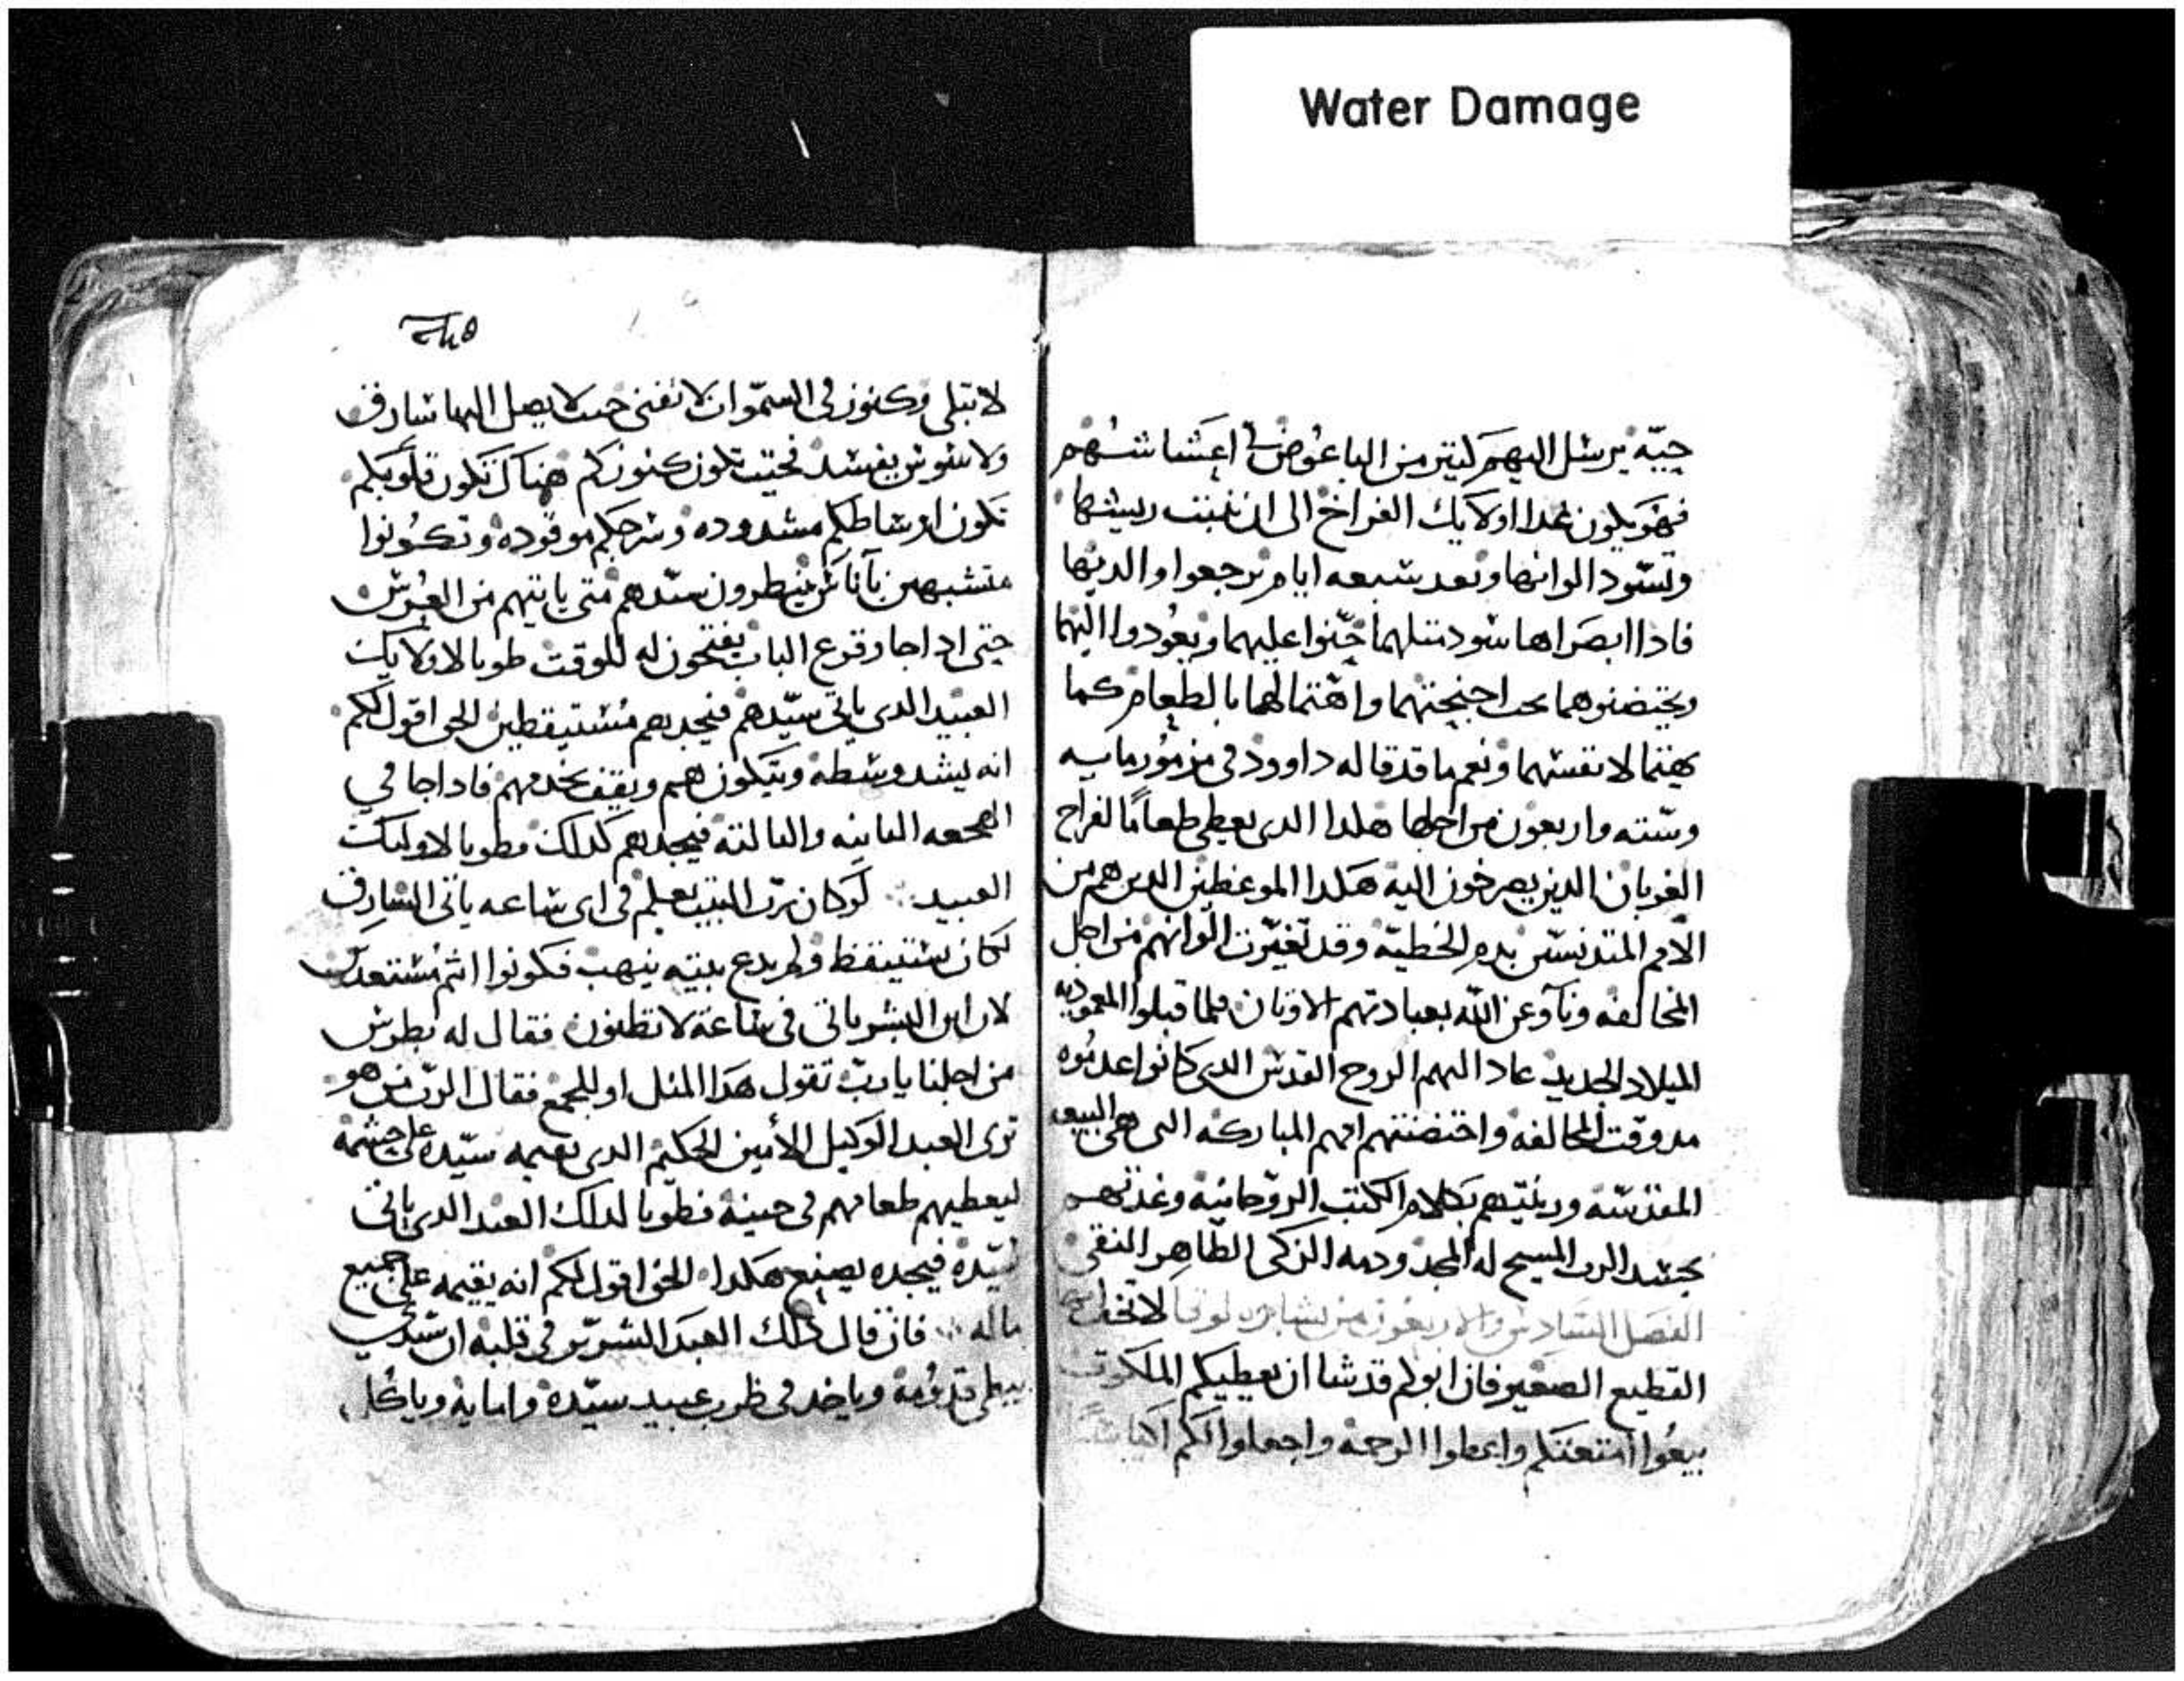 Water Damage
حيّه يرسل اليهم كتير من الباعوض اعشا شهم
فهو يكون غدا اولايك الفراخ الى ان تنبت ريشها
وتسود الوانها وبعد سبعه ايام يرجعوا والديها
فادا ابصراها سود متلهما حنوا عليهما ويعودوا اليهما
ويحتضنوهما تحت اجنحتهما واهتما لهما بالطعام كما
يهتما لانفسهما ونعم ما قد قاله داوود في مزمور مايه
وسته واربعون من اجلها هكدا الدى يعطى طعامًا لفراخ
الغربان الدين يصرخون اليه هكدا الموعظين الدين هم من
الامم المتدنسين بدم الخطيّه وقد تغيّرت الوانهم من اجل
المخالفه وناوعن الله بعبادتهم الاوتان فلما قبلوا المعموديه
الميلاد الجديد عاد اليهم الروح القدس الدى كانوا عدموه
مد وقت المخالفه واحتضنتهم امهم المباركه التى هى البيعه
المقدسّه وربّتهم بكلام الكتب الروحانيه وغدتهم
بجسد الرب المسيح له المجد ودمه الزكى الطاهر النقى
الفصل السادس والاربعون من بشارة لوقا لاتخف ايها
القطيع الصغير فان ابوكم قد شا ان يعطيكم الملكوت
بيعوا امتعتكم واعطوا الرحمه واجعلوا لكم اكياسًا
ܢܡܗ
لا تبلى وكنوز فى السمّوات لا تفنى حيت لا يصل اليها سارق
ولا سوس يفسد فحيت تكون كنوزكم هناك تكون قلوبكم
تكون اوساطكم مشدوده وسرجكم موقوده وتكونوا
متشبهين بآناس ينتطرون سيّدهم متى ياتيهم من العرس
حتى ادا جا وقرع الباب يفتحون له للوقت طوبا لاولايك
العبيد الدى ياتى سيّدهم فيجدهم مستيقطين الحق اقول لكم
انه يشد وسطه ويتكون هم ويقف يخدمهم فادا جا في
الهجعه التانيه والتالته فيجدهم كدلك فطوبا لاوليك
العبيد ܀ لو كان رب البيت يعلم فى اى ساعه ياتى السارق
لكان يستيقظ ولم يدع بيته ينهب فكونوا انتم مستعدين
لان ابن البشر ياتى فى ساعة لا تظنون فقال له بطرس
من اجلنا يا ربّ تقول هدا المتل او للجمع فقال الربّ من هو
ترى العبد الوكيل الأمين الحكيم الدى يقيمه سيّده على حشمه
ليعطيهم طعامهم فى حينه فطوبا لدلك العبد الدى ياتى
سيّده فيجده يصنع هكدا الحق اقول لكم انه يقيمه على جميع
ماله ܀ فان قال دلك العبد الشرير فى قلبه ان سيدي
يبطى قدومه وياخد فى ظرب عبيد سيّده وامايه وياكل